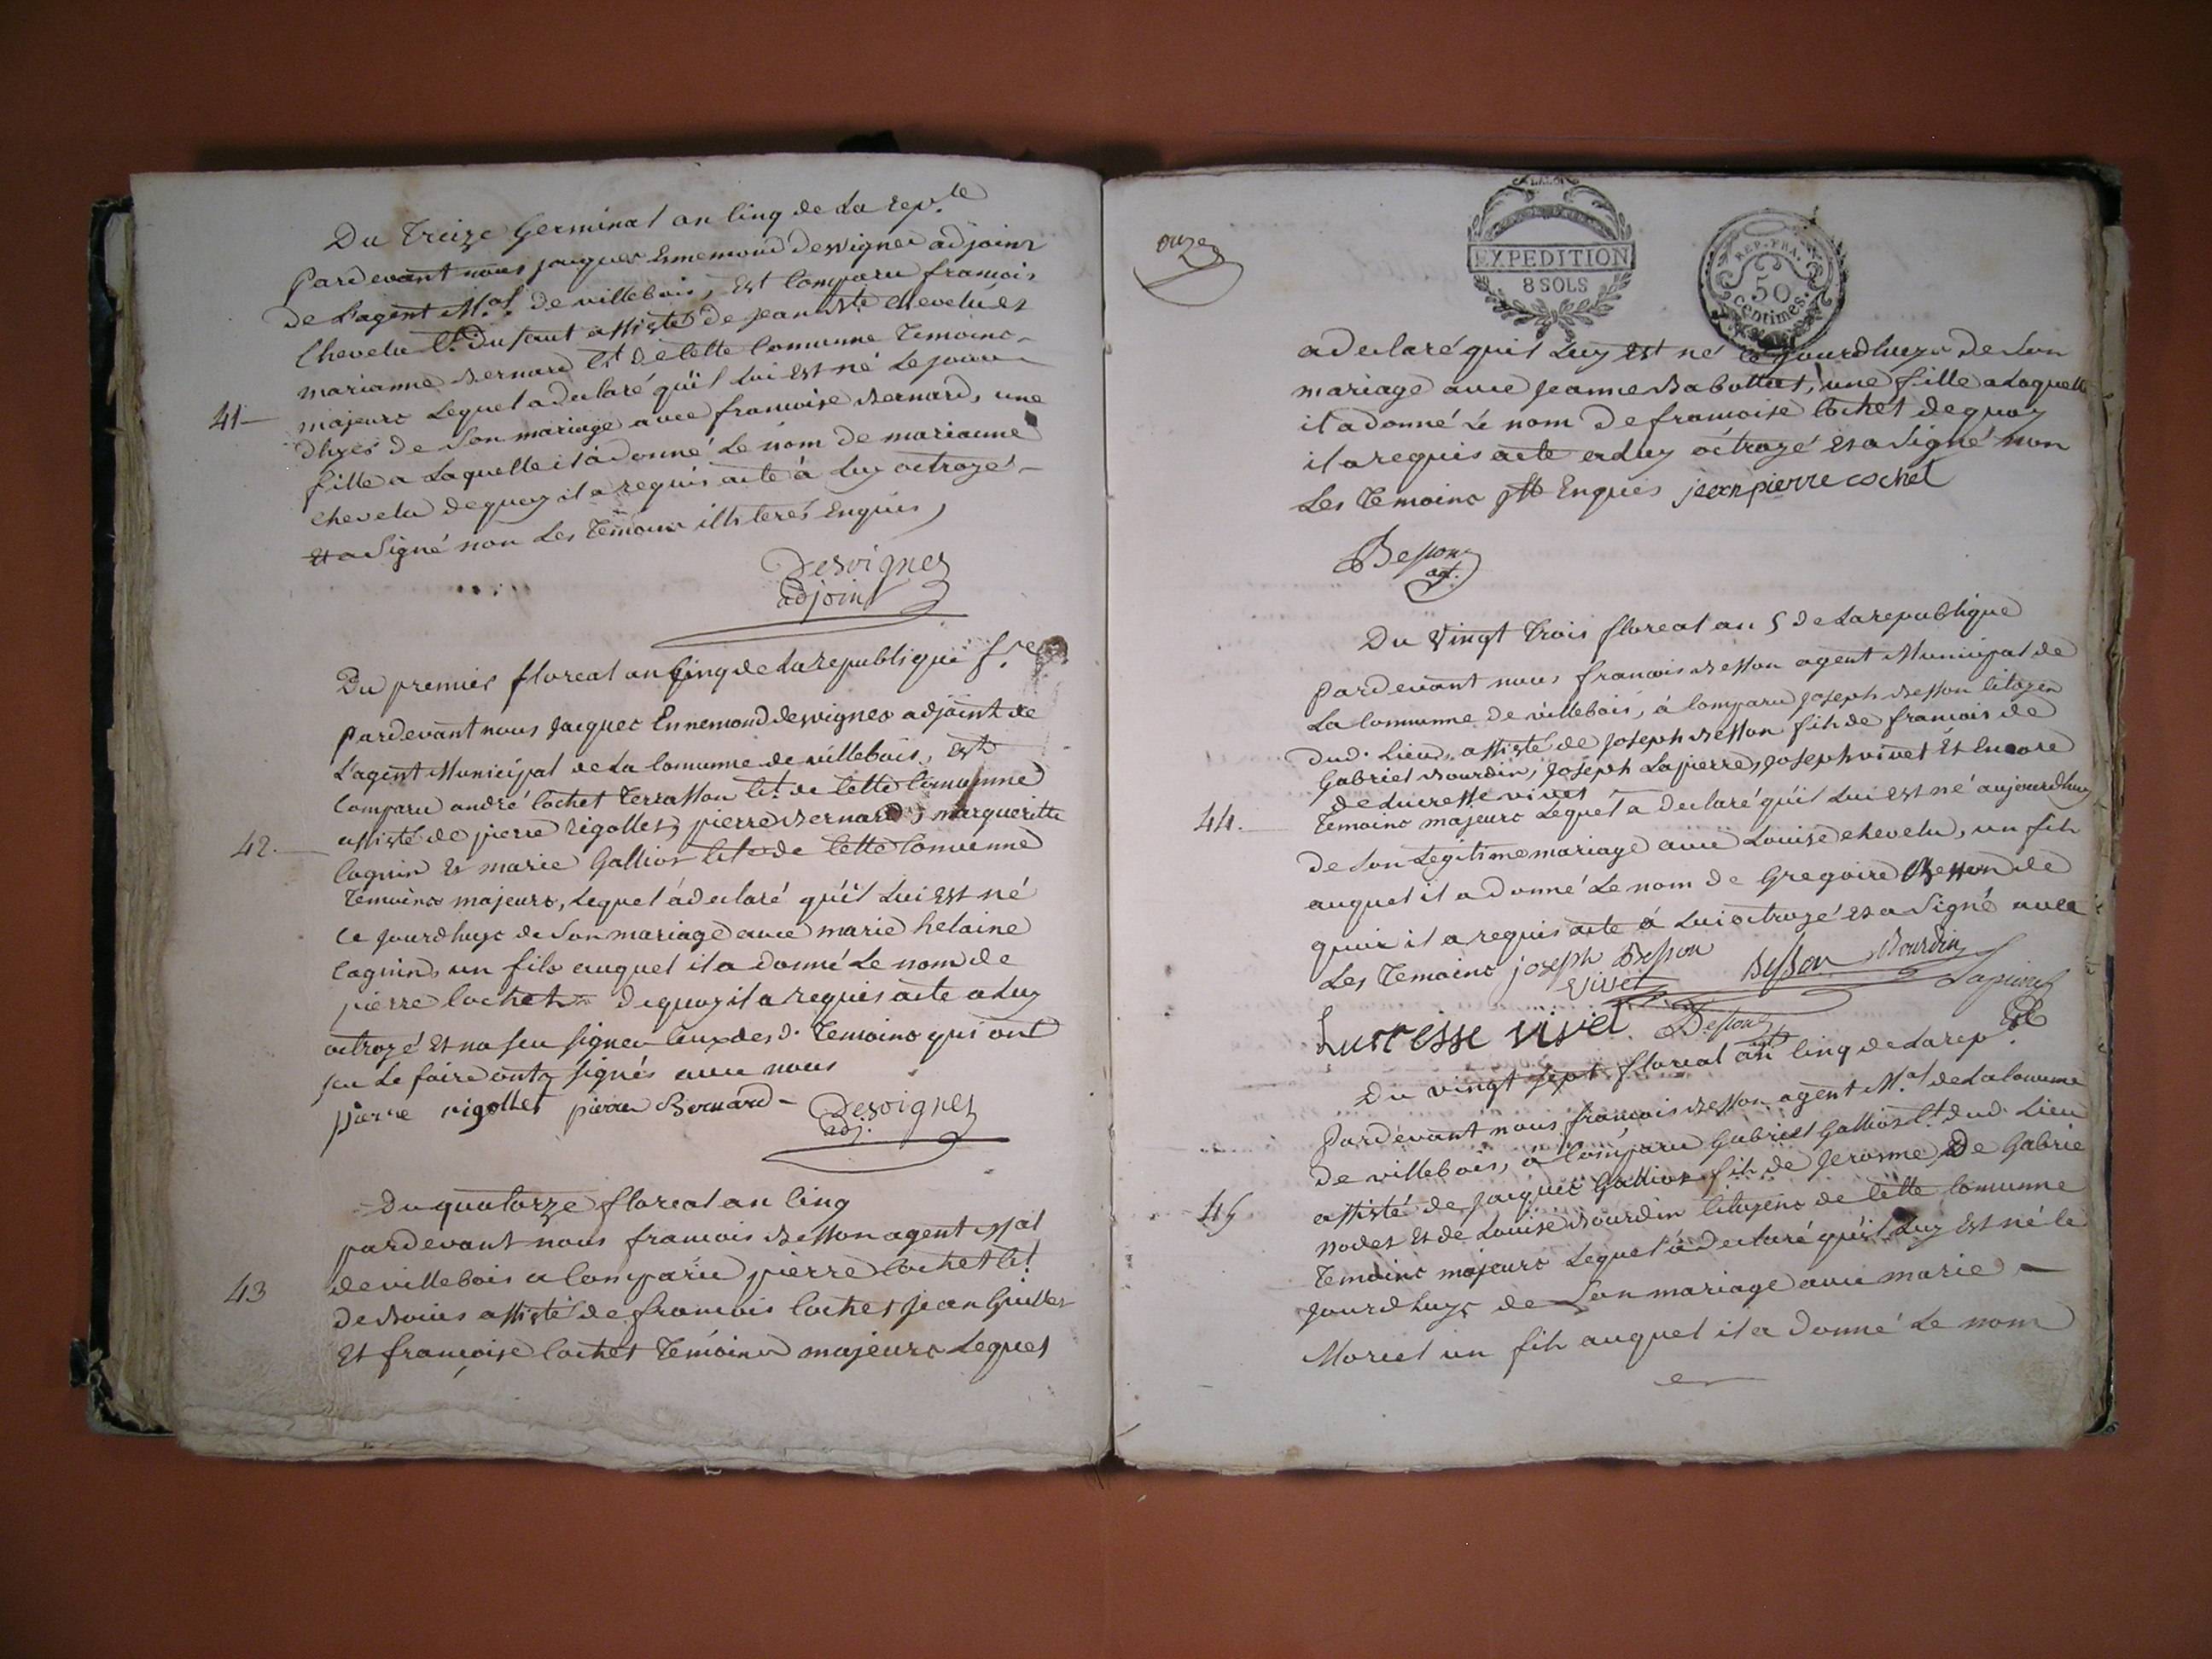 Du treize Germinal an cinq de la rep.le
pardevant nous jacques Ennemond desvignes adjoint
de l'agent M.al de villebois, est comparu francois
chevelu Ct. du saut assisté de jean Bte. chevelu et
marianne Bernard Ct. de cette comunne temoins
majeurs lequel a declaré qu'il lui est né le jour
41
dhuy de son mariage avec francoise Bernard, une
fille a laquelle il a donné le nom de marianne
chevelu de quoy il a requis acte à luy octroyé
et a signé non les temoins illiterés enquis,
Desvignes
adjoint
Du premier floreal an cinq de la republique f.se
pardevant nous jacques Ennemond desvignes adjoint de
l'agent Municipal de la comunne de villebois, est
comparu andré cochet terrasson Cit. de cette comunne
assisté de pierre rigollet, pierre Bernard, margueritte
42.
cognin et marie Gallior Cit. de cette comunne
temoins majeurs, lequel à declaré qu'il lui est né
ce jourdhuy de son mariage avec marie helaine
cognin, un fils auquel il a donné le nom de
pierre cochet de quoy il a requis acte a luy
octroyé et na seu signer ceux des d. temoins qui ont
seu le faire onty signés avec nous
pierre rigollet pierre Bernard Desvignes
adj.
Du quatorze floreal an cinq
pardevant nous francois Besson agent M.al
de villebois a comparu pierre cochet Ct.
43
de Bouis assisté de francois cochet jean Guillet
et françoise cochet temoins majeurs lequel
onze
EXPEDITION
8 SOLS
REP. FRA.
50
centimes.
a declaré quil luy est né ce jourdhuy de son
mariage avec jeanne Babollat, une fille a laquelle
il a donné le nom de francoise cochet de quoy
il a requis acte a luy octroyé et a signé non
les temoins Enquis jean pierre cochet
Besson
agt.
Du vingt trois floreal an 5 de la republique
pardevant nous francois Besson agent Municipal de
la comunne de villebois, à comparu joseph Besson citoyen
dud. lieu, assisté de joseph Besson fils de francois de
Gabriel Bourdin, joseph lapierre, joseph vivet et encore
de lucresse vivet
44.
temoins majeurs lequel a declaré qu'il lui est né aujourdhuy
de son legitime mariage avec louise chevelu, un fils
auquel il a donné le nom de Gregoire Besson de
quoi il a requis acte à lui octroyé et a signé avec
les temoins joseph Besson Besson Bourdin
vivet lapierre
Lucresse vivet Besson
Du vingt sept floreal an cinq de la rep.
pardevant nous francois Besson agent M.al de la comune
de villebois, à comparu Gabriel Gallior Ct. dud. lieu
assisté de jacques Gallior fils de jerosme De Gabrie
45
nodet et de louise Bourdin citoyens de cette comunne
temoins majeurs lequel à declaré qu'il luy est né le
jourdhuy de son mariage avec marie
Morel un fils auquel il a donné le nom